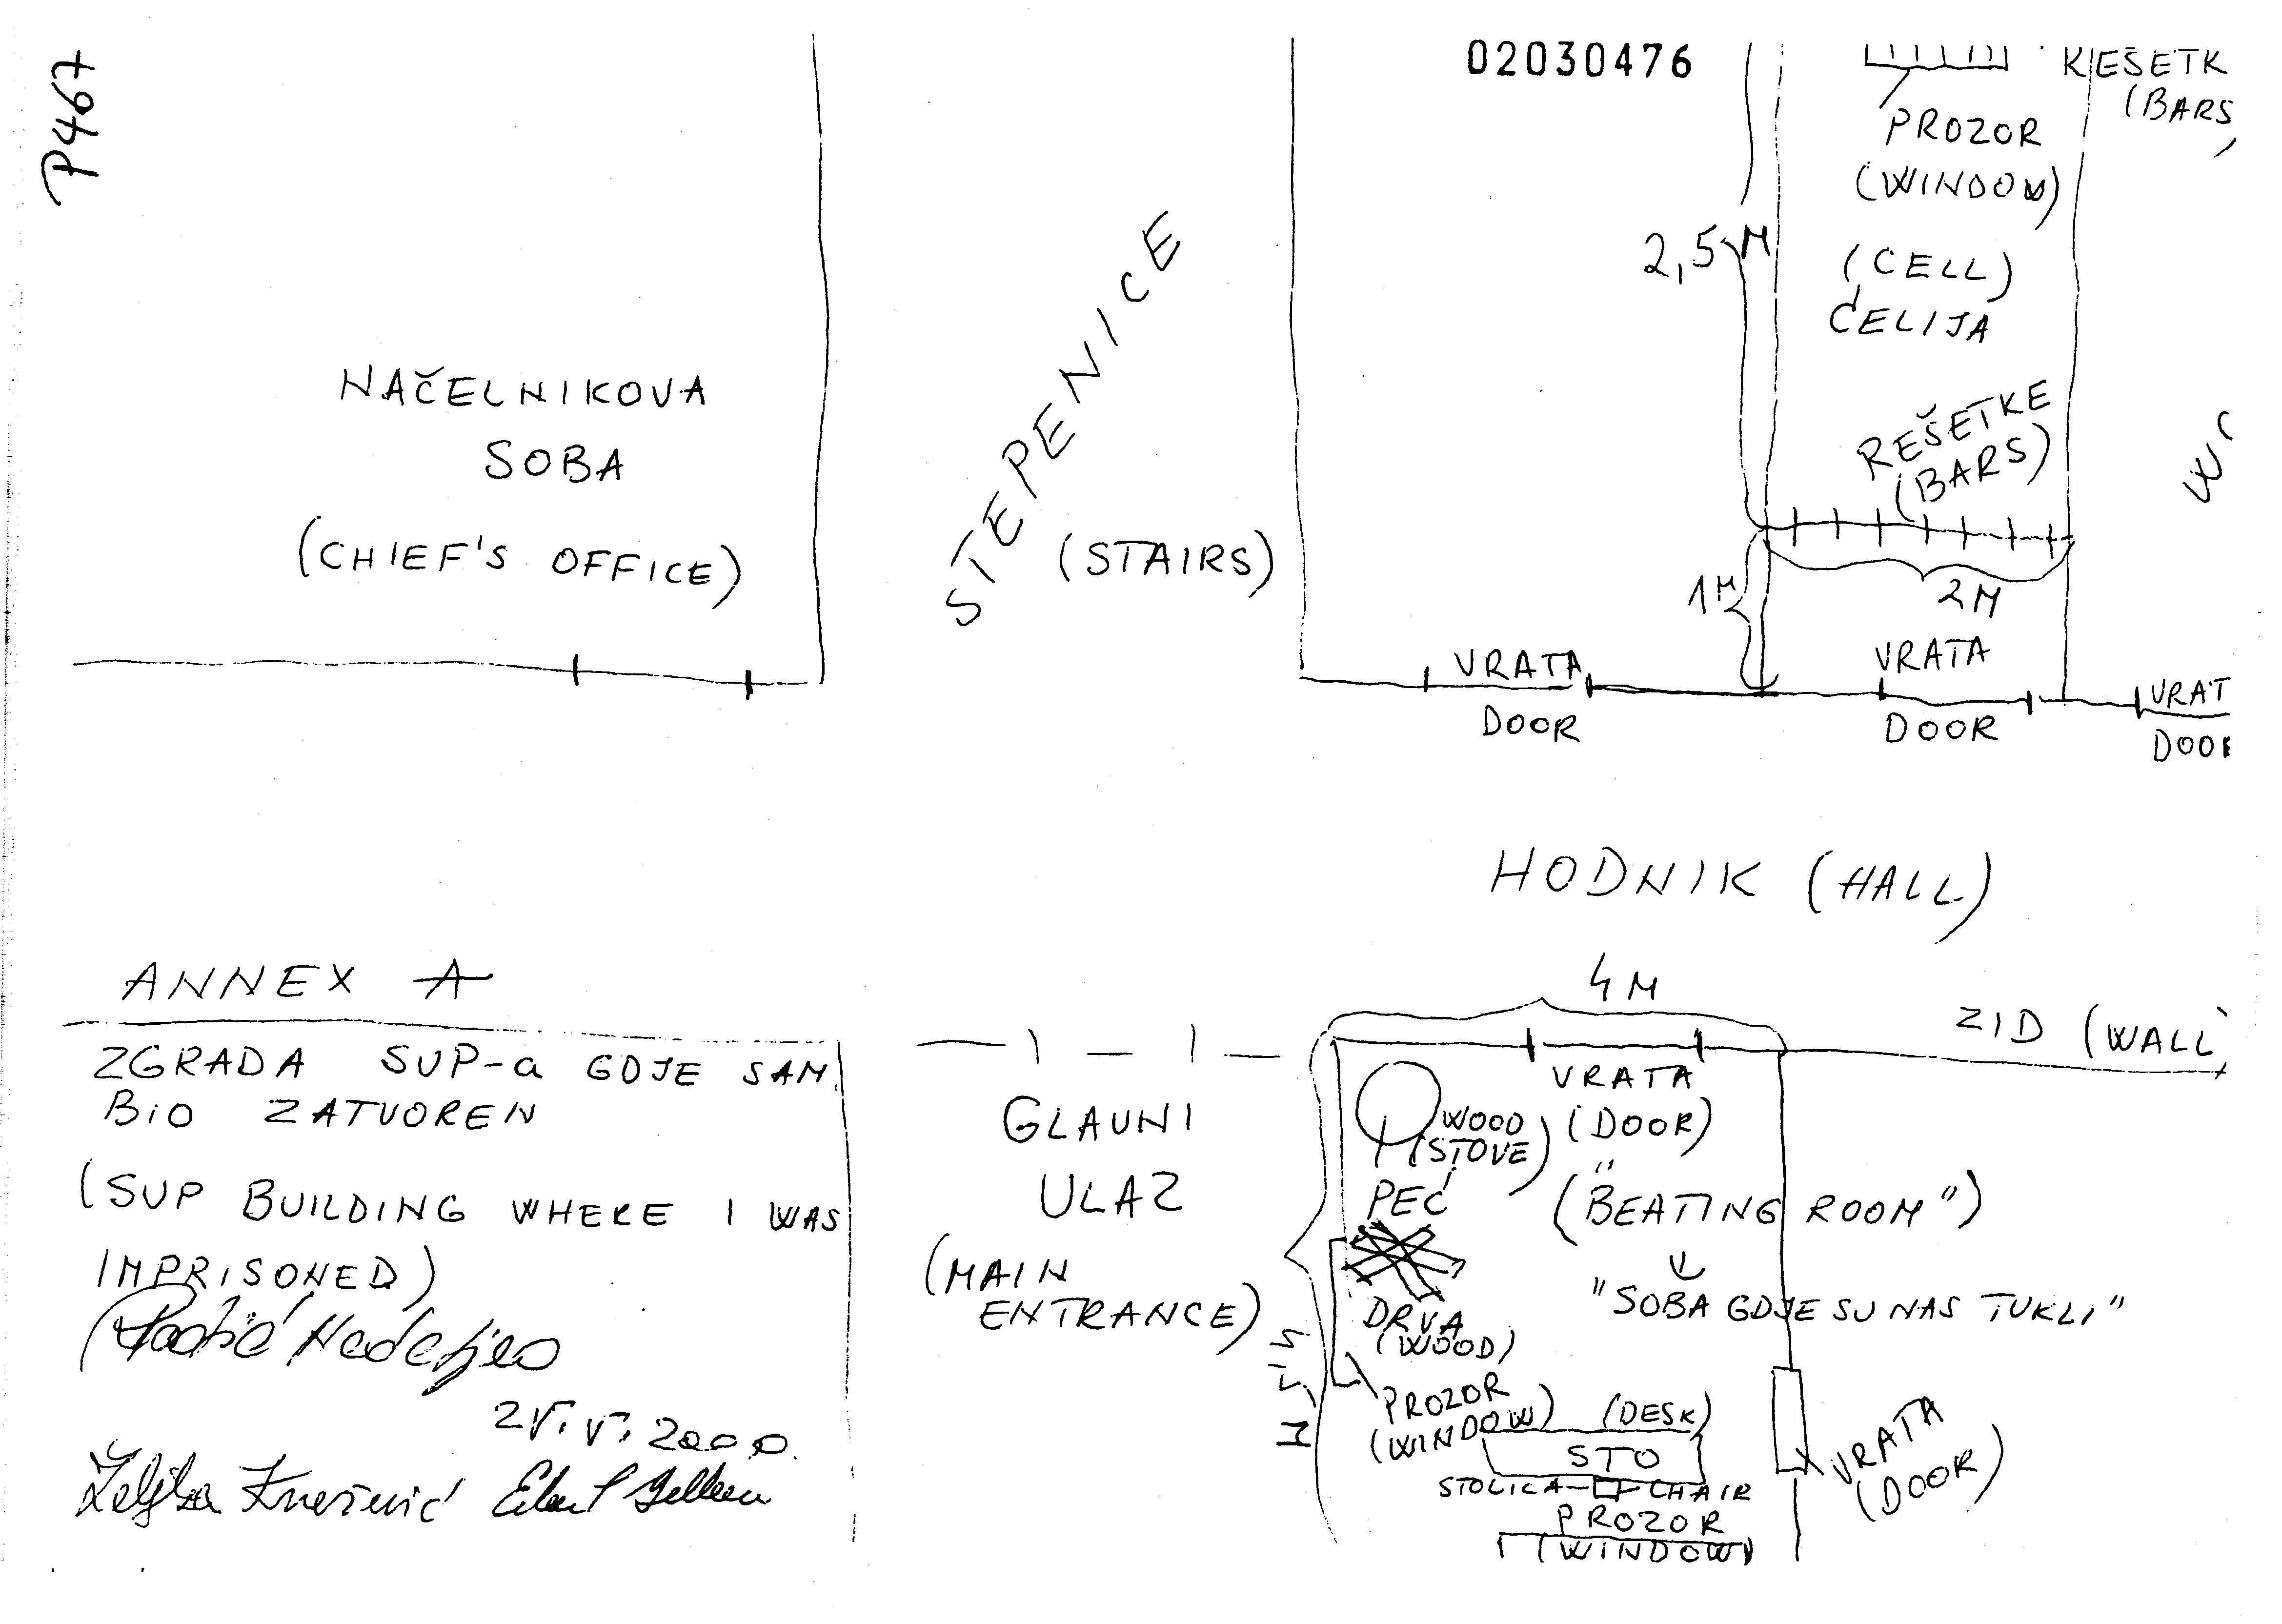 P467
02030476
REŠETK
(BARS
PROZOR
(WINDOW)
2,5 M
(CELL)
ĆELIJA
STEPENICE
(STAIRS)
NAČELNIKOVA
SOBA
(CHIEF'S OFFICE)
REŠETKE
(BARS)
WC
1M
2M
VRATA
DOOR
VRATA
DOOR
VRAT
DOOR
HODNIK (HALL)
ANNEX A
ZGRADA SUP-a GDJE SAM
BiO ZATVOREN
(SUP BUILDING WHERE I WAS
IMPRISONED)
Nedeljko
25. V. 2000.
Željka Knežević
GLAVNI
ULAZ
(MAIN
ENTRANCE)
4M
ZID (WALL
VRATA
(DOOR)
WOOD
(STOVE)
PEĆ
("BEATING ROOM")
"SOBA GDJE SU NAS TUKLI"
DRVA
(WOOD)
PROZOR
(WINDOW)
(DESK)
STO
STOLICA CHAIR
PROZOR
(WINDOW)
VRATA
(DOOR)